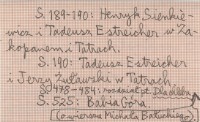 S. 189-190: Henryk Sienkie-
wicz i Tadeusz Estreicher w Za-
kopanem i Tatrach.
S. 190: Tadeusz Estreicher
i Jerzy Żuławski w Tatrach.
S. 478-484: rozdział pt.
S. 525: Babia Góra.
(o wierszu Michała Bałuckiego)